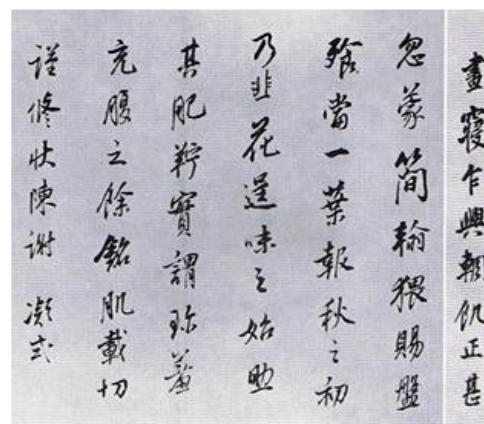 晝寢乍興輖飢正甚
忽蒙簡翰猥賜盤
飧當一葉報秋之初
乃韭花逞味之始助
其肥羜實謂珍羞
充腹之餘銘肌載切
謹修狀陳謝 凝式